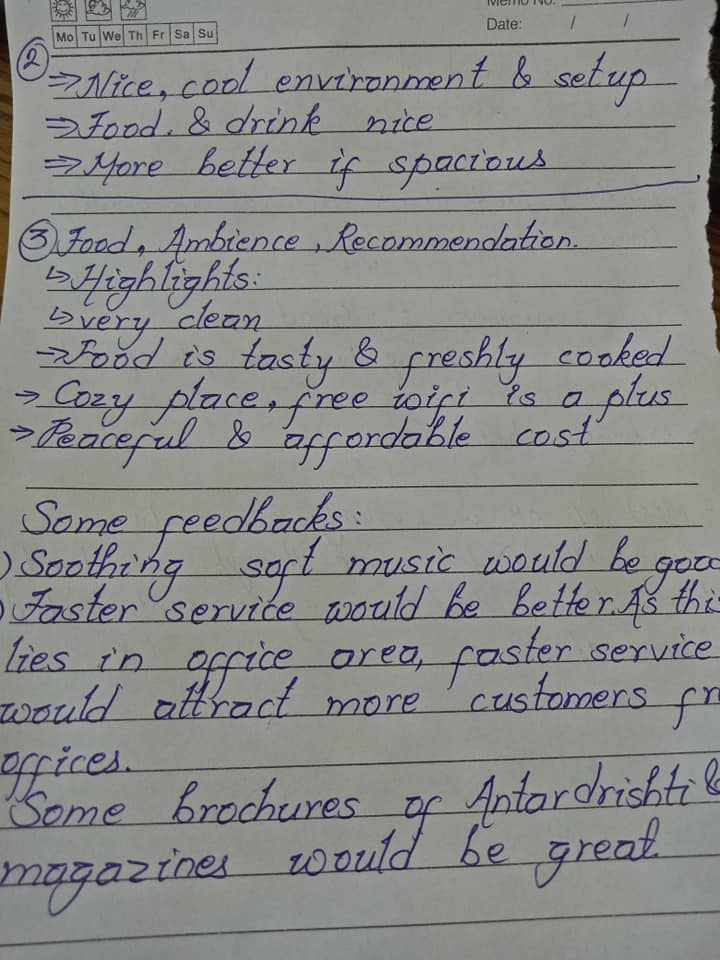 Memo No.
Mo Tu We Th Fr Sa Su
Date: / /
② ⇒ Nice, cool environment & setup
⇒ Food. & drink nice
⇒ More better if spacious
③ Food, Ambience, Recommendation.
↳ Highlights:
↳ very clean
→ Food is tasty & freshly cooked
→ Cozy place, free wifi is a plus
→ Peaceful & affordable cost
Some feedbacks:
) Soothing soft music would be good
) Faster service would be better. As this
lies in office area, faster service
would attract more customers fr
offices.
Some brochures of Antardrishti &
magazines would be great.